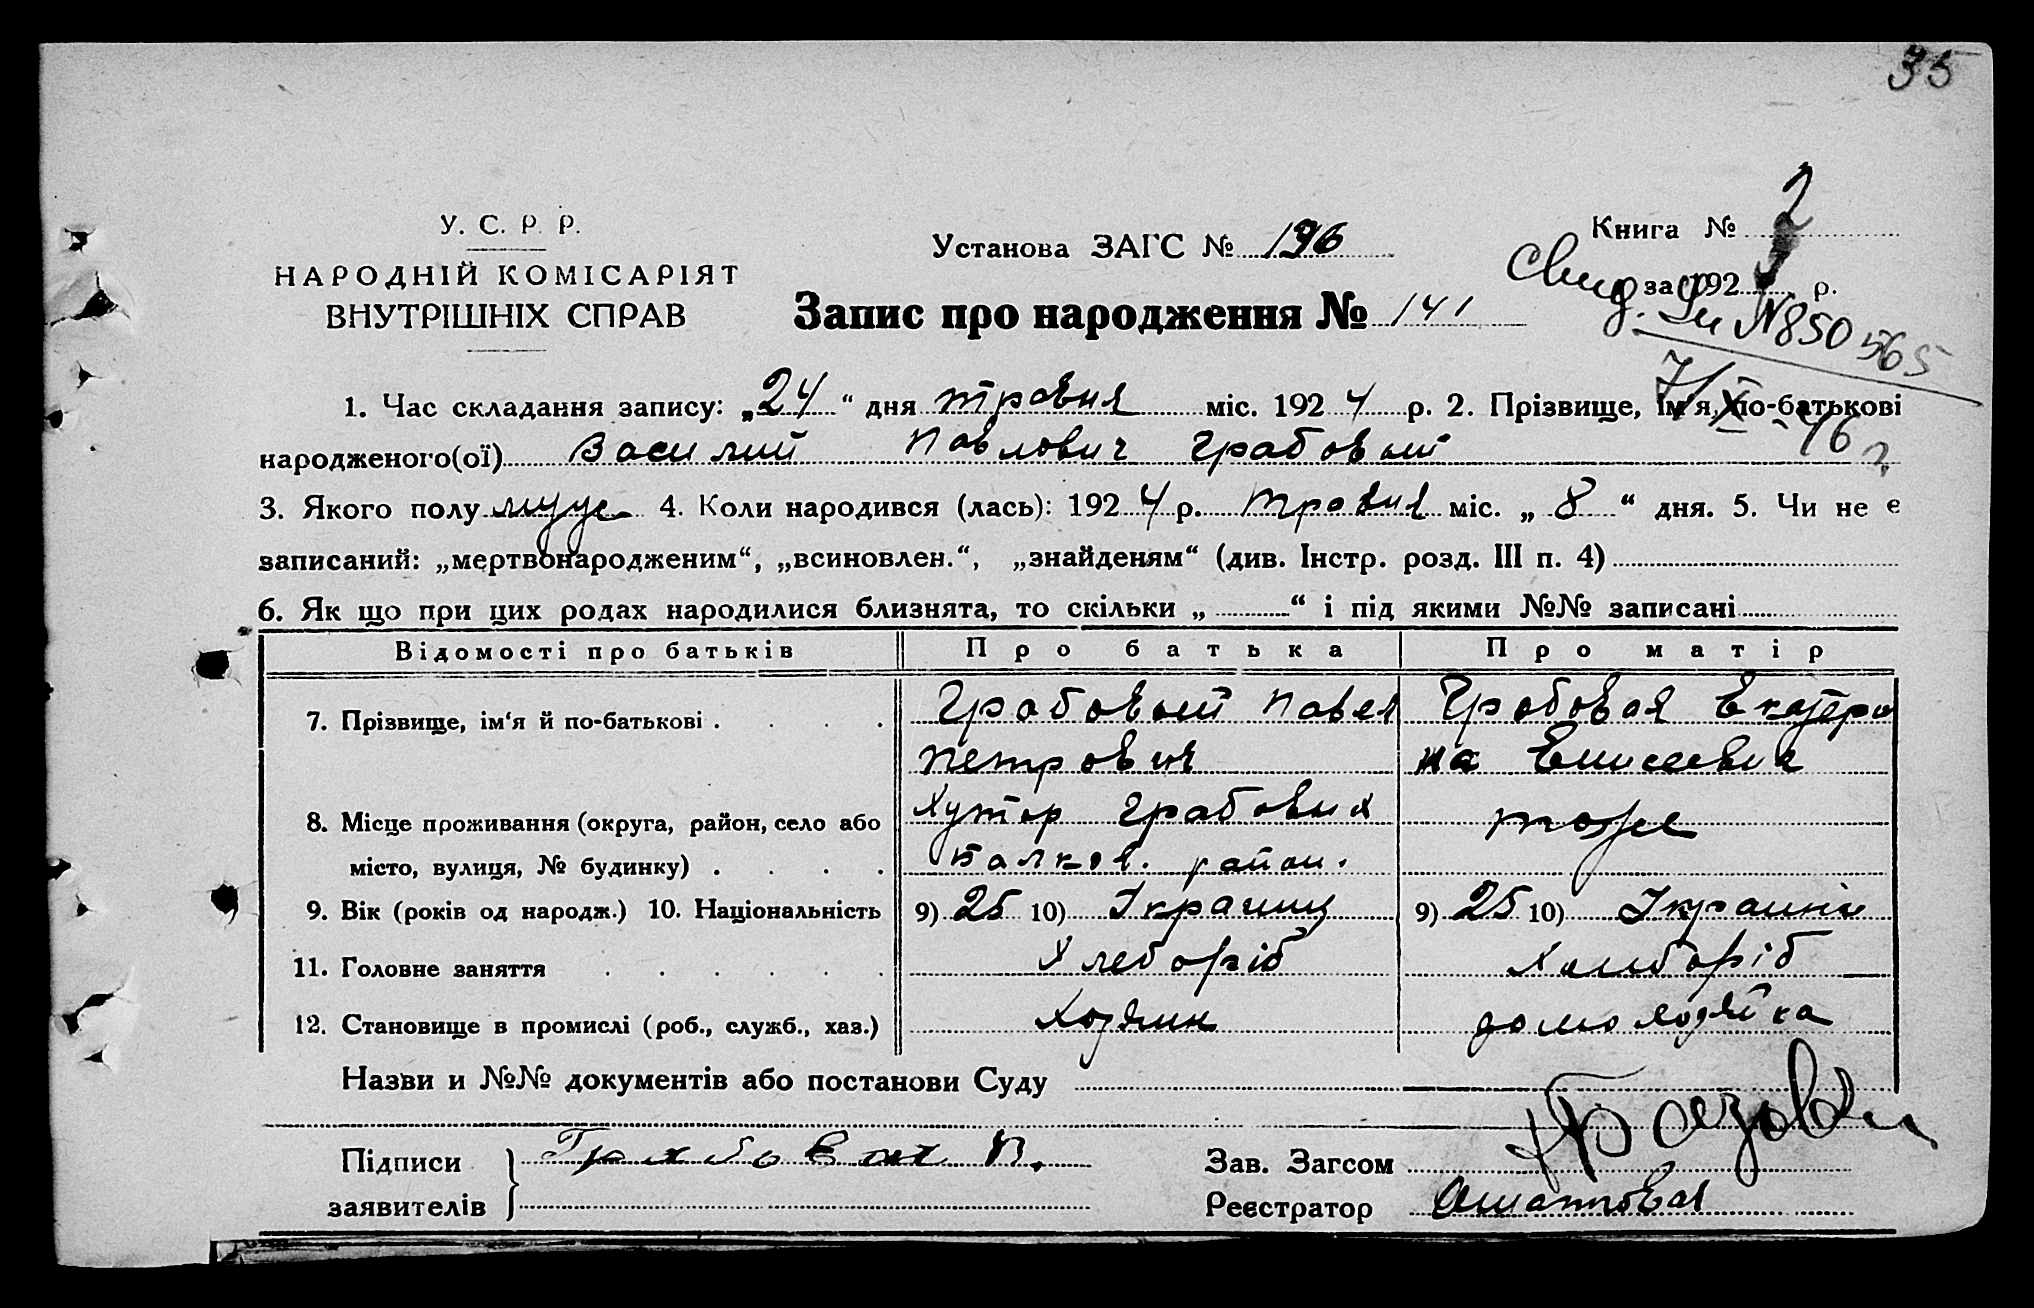 35
У. С. Р. Р.
НАРОДНІЙ КОМІСАРІЯТ
ВНУТРІШНІХ СПРАВ
Установа ЗАГС № 196
Запис про народження № 141
Книга № 2
за 192 р.
Свид. № 850565
7/XII-46 г.
1. Час складання запису: „24“ дня травня міс. 1924 р. 2. Прізвище, ім'я, по-батькові
народженого(ої) Василий Павлович Грабовый
3. Якого полу муж 4. Коли народився (лась): 1924 р. травня міс. „8“ дня. 5. Чи не є
записаний: „мертвонародженим“, „всиновлен.“, „знайденям“ (див. Інстр. розд. III п. 4)
6. Як що при цих родах народилися близнята, то скільки „ “ і під якими №№ записані
Відомості про батьків Про батька Про матір
7. Прізвище, ім'я й по-батькові . . . . Грабовый Павел Грабовая Екатери
Петрович на Елисеевна
8. Місце проживання (округа, район, село або Хутор Грабовых тоже
місто, вулиця, № будинку) . . . . Валков. район.
9. Вік (років од народж.) 10. Національність 9) 25 10) Украинц 9) 25 10)
11. Головне заняття . . . . . . Хлеборіб
12. Становище в промислі (роб., служб., хаз.) Хозяин домохозяйка
Назви и №№ документів або постанови Суду
Підписи
заявителів
Грабовый П.
Зав. Загсом
Реєстратор